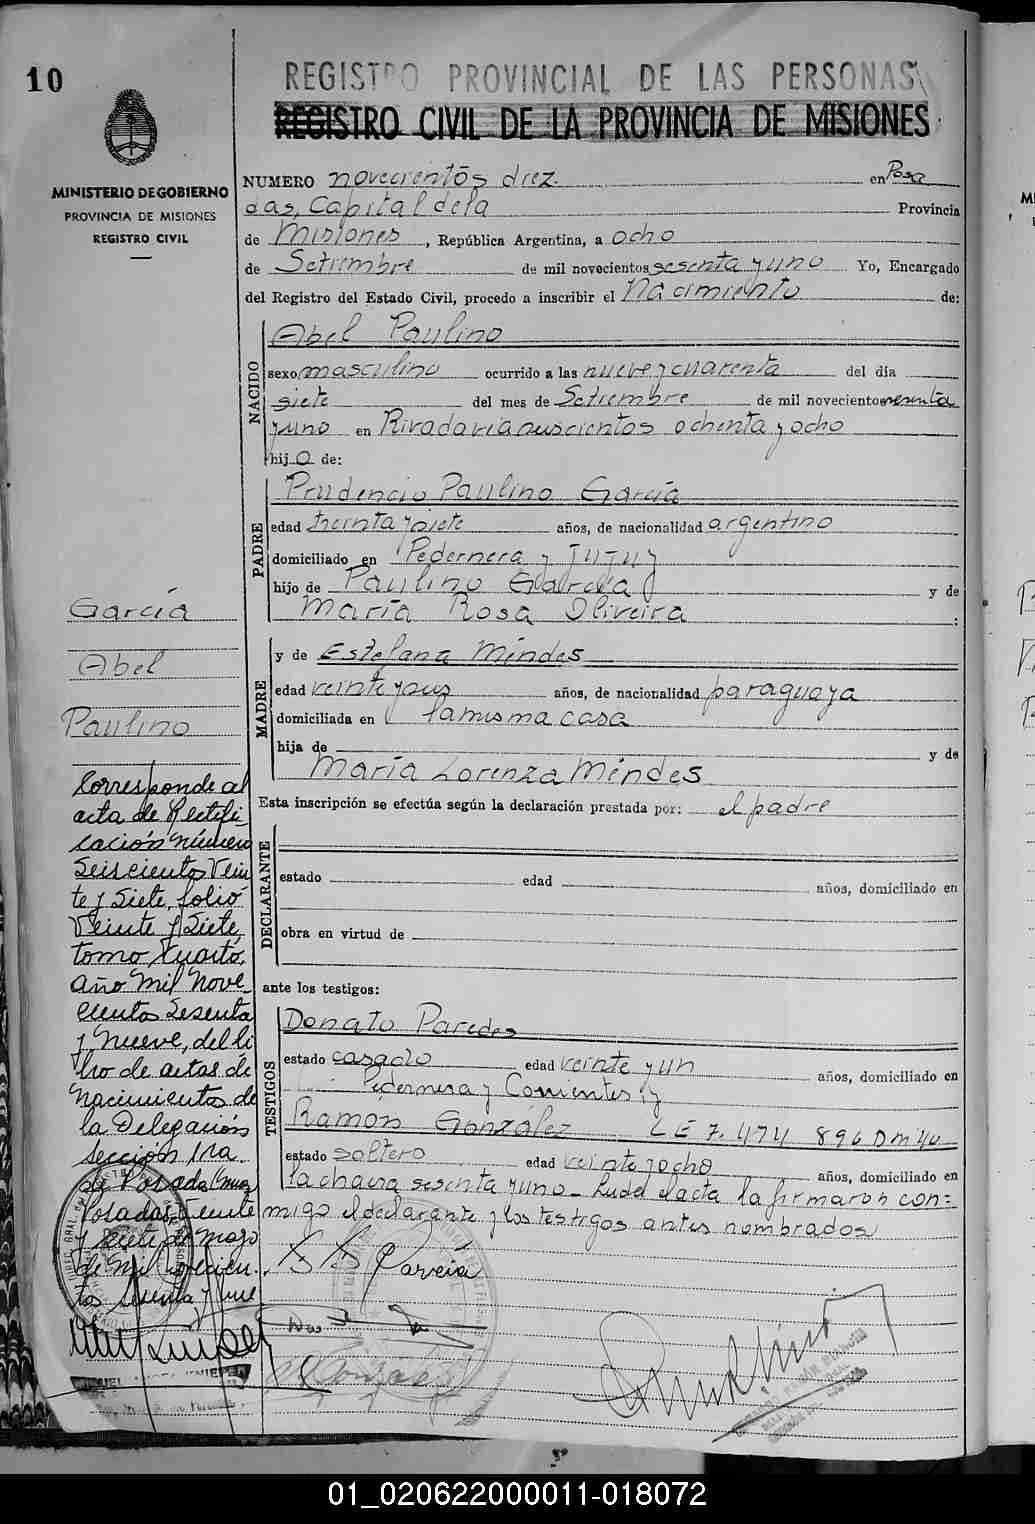 10
REGISTRO PROVINCIAL DE LAS PERSONAS
REGISTRO CIVIL DE LA PROVINCIA DE MISIONES
MINISTERIO DE GOBIERNO
PROVINCIA DE MISIONES
REGISTRO CIVIL
NUMERO novecientos diez. en Posa
das, Capital de la Provincia
de Misiones, República Argentina, a ocho
de Setiembre de mil novecientos sesenta y uno Yo, Encargado
del Registro del Estado Civil, procedo a inscribir el Nacimiento de:
NACIDO
Abel Paulino
sexo masculino ocurrido a las nueve y cuarenta del día
siete del mes de Setiembre de mil novecientos sesenta
y uno en Rivadavia doscientos ochenta y ocho
hijo de:
PADRE
Prudencio Paulino García
edad treinta y siete años, de nacionalidad argentino
domiciliado en Pedernera y Jujuy
hijo de Paulino García y de
María Rosa Oliveira :
MADRE
y de Estefana Méndes
edad veinte y dos años, de nacionalidad paraguaya
domiciliada en la misma casa
hija de y de
María Lorenza Méndes
Esta inscripción se efectúa según la declaración prestada por: el padre
DECLARANTE
estado edad años, domiciliado en
obra en virtud de
ante los testigos:
TESTIGOS
Donato Paredes
estado casado edad veinte y un años, domiciliado en
Pedernera y Corrientes; y
Ramón González L E 7.474 896 D M 40
estado soltero edad veinte y ocho años, domiciliado en
la chacra sesenta y uno - Leída el acta la firmaron con=
migo el declarante y los testigos antes nombrados
García
Abel
Paulino
Corresponde al
acta de Rectifi-
cación número
Seiscientos Vein
te y Siete, folio
Veinte y Siete,
tomo Cuarto,
año Mil Nove-
cientos Sesenta
y Nueve, del li
bro de actas de
Nacimientos de
la Delegación
Sección 1ra.
de Posadas
Posadas, Veinte
y siete de Mayo
de Mil Novecien-
tos Setenta y
P P García
R González
01_020622000011-018072